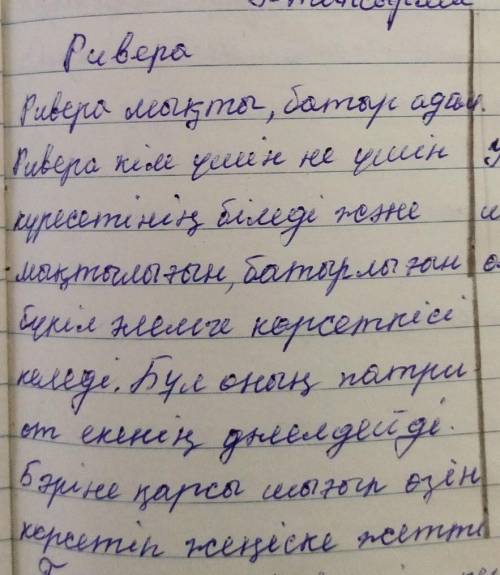 Ривера
Ривера мықты, батыр адам.
Ривера кім үшін не үшін
күресетінің біледі және
мықтылығын, батырлығын
бүкіл әлемге көрсеткісі
келеді. Бұл оның патри-
от екенің дәлелдейді.
Бәріне қарсы шығып өзін
көрсетіп жеңіске жетті